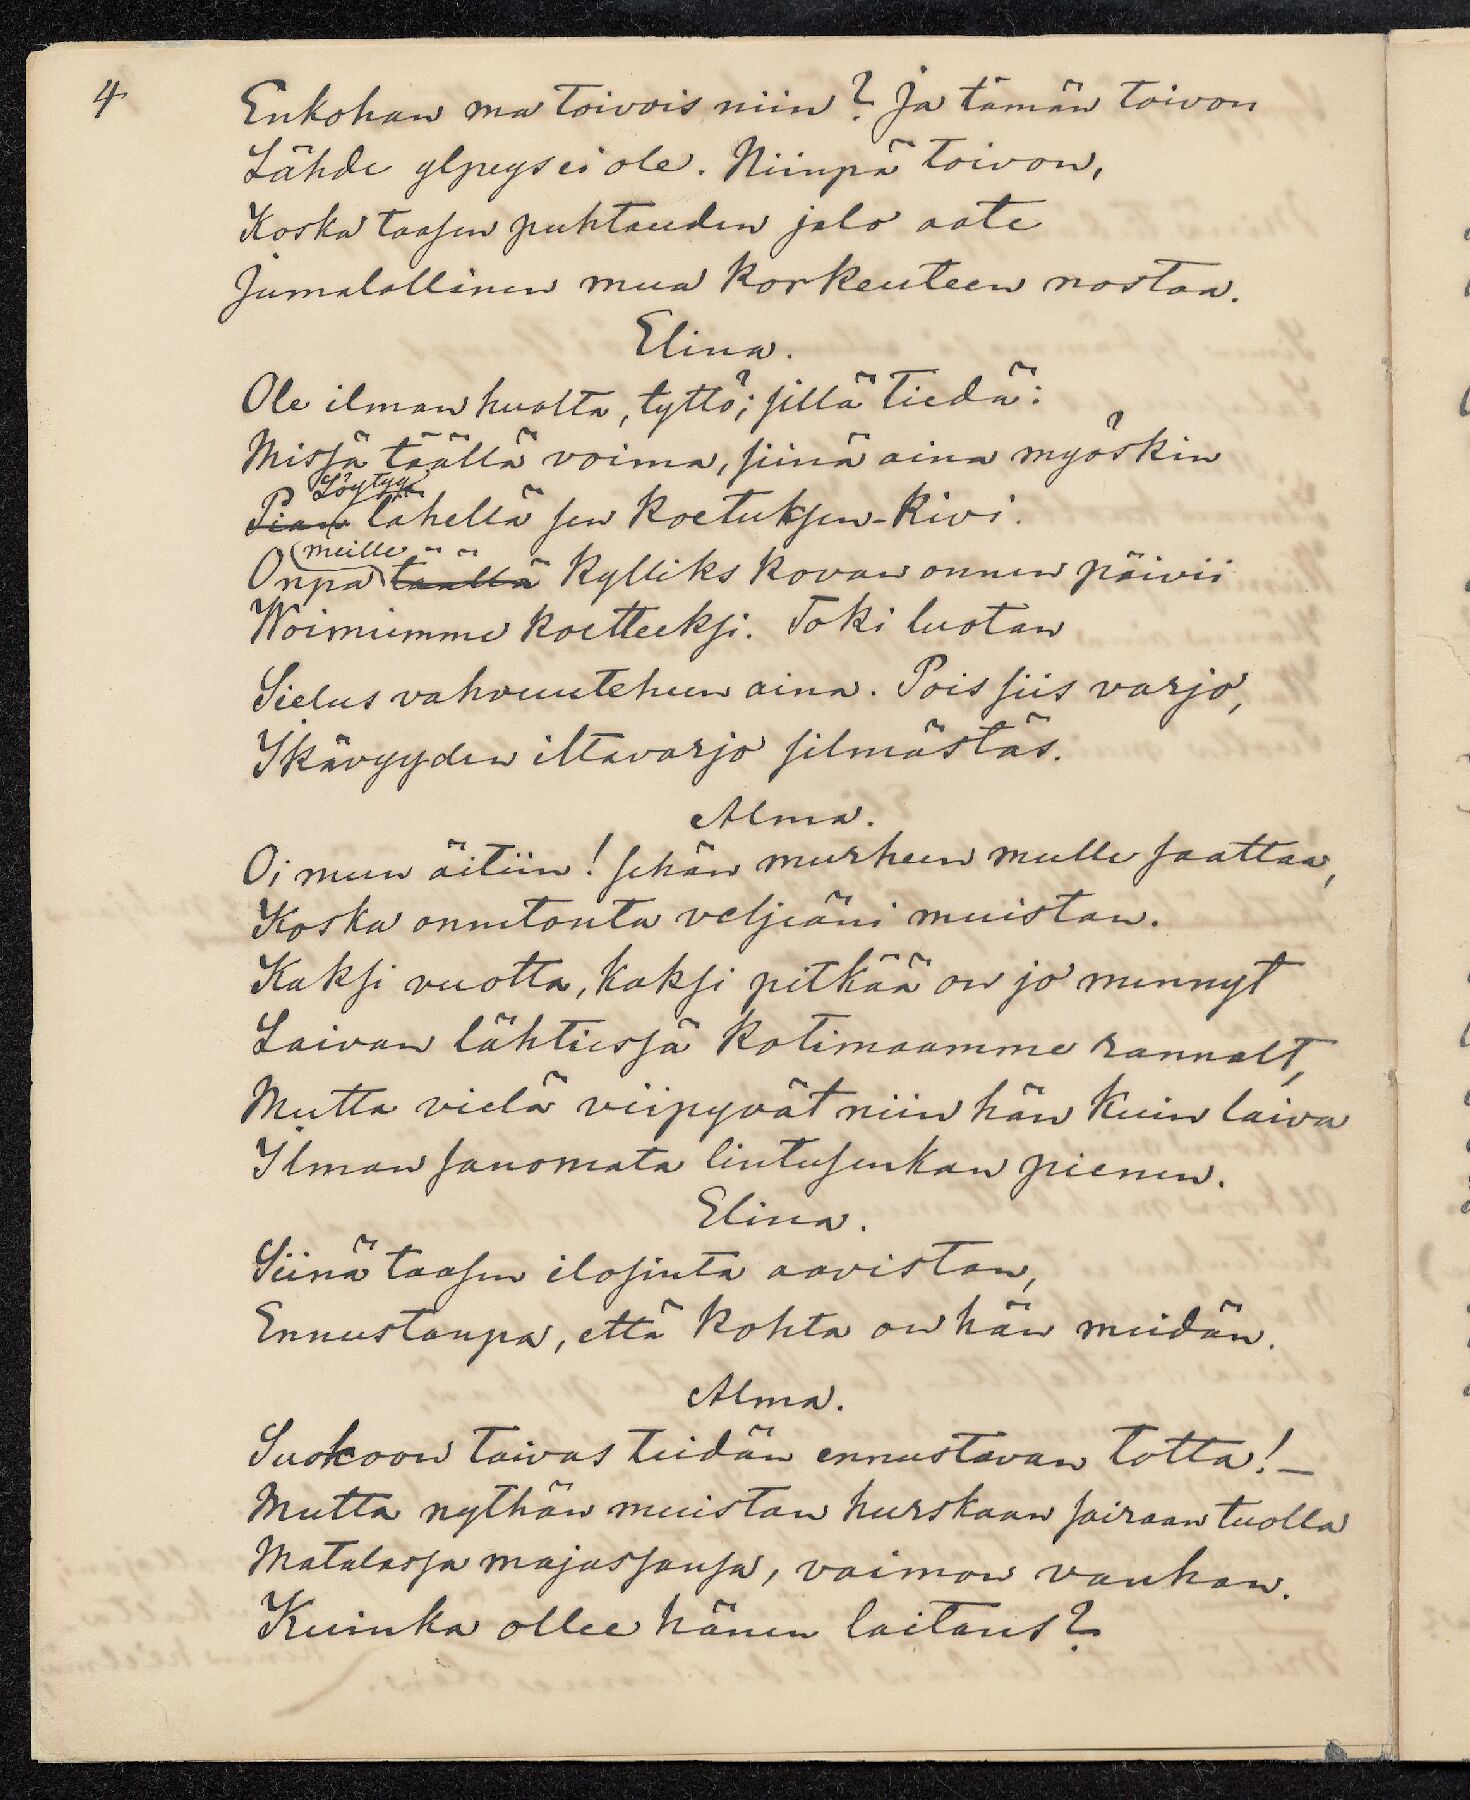 4
Enkohan ma toivois niin? Ja tämän toivon
Lähde ylpeys ei ole. Niinpä toivon,
Koska taasen puhtauden jalo aate
Jumalallinen mua korkeuteen nostaa.
Elina.
Ole ilman huolta, tyttö; sillä tiedä:
Missä täällä voima, siinä aina myöskin
Löytyy
Pian lähellä sen koetuksen-kivi.
meille
Onpa täällä kylliks kovan onnen päivii
Woimiemme koetteeksi. Toki luotan
Sielus vahvuutehen aina. Pois siis varjo,
Ikävyyden iltavarjo silmästäs.
Alma.
Oi mun äitiin! sehän murheen mulle saattaa,
Koska onnetonta veljeäni muistan.
Kaksi vuotta, kaksi pitkää on jo mennyt
Laivan lähtiessä kotimaamme rannalt,
Mutta vielä viipyvät niin hän kuin laiva
Ilman sanomata lintusenkan pienen.
Elina.
Siinä taasen ilosinta aavistan,
Ennustanpa, että kohta on hän meidän.
Alma.
Suokoon taivas teidän ennustavan totta! –
Mutta nythän muistan hurskaan sairaan tuolla
Matalassa majassansa, vaimon vanhan.
Kuinka ollee hänen laitans?